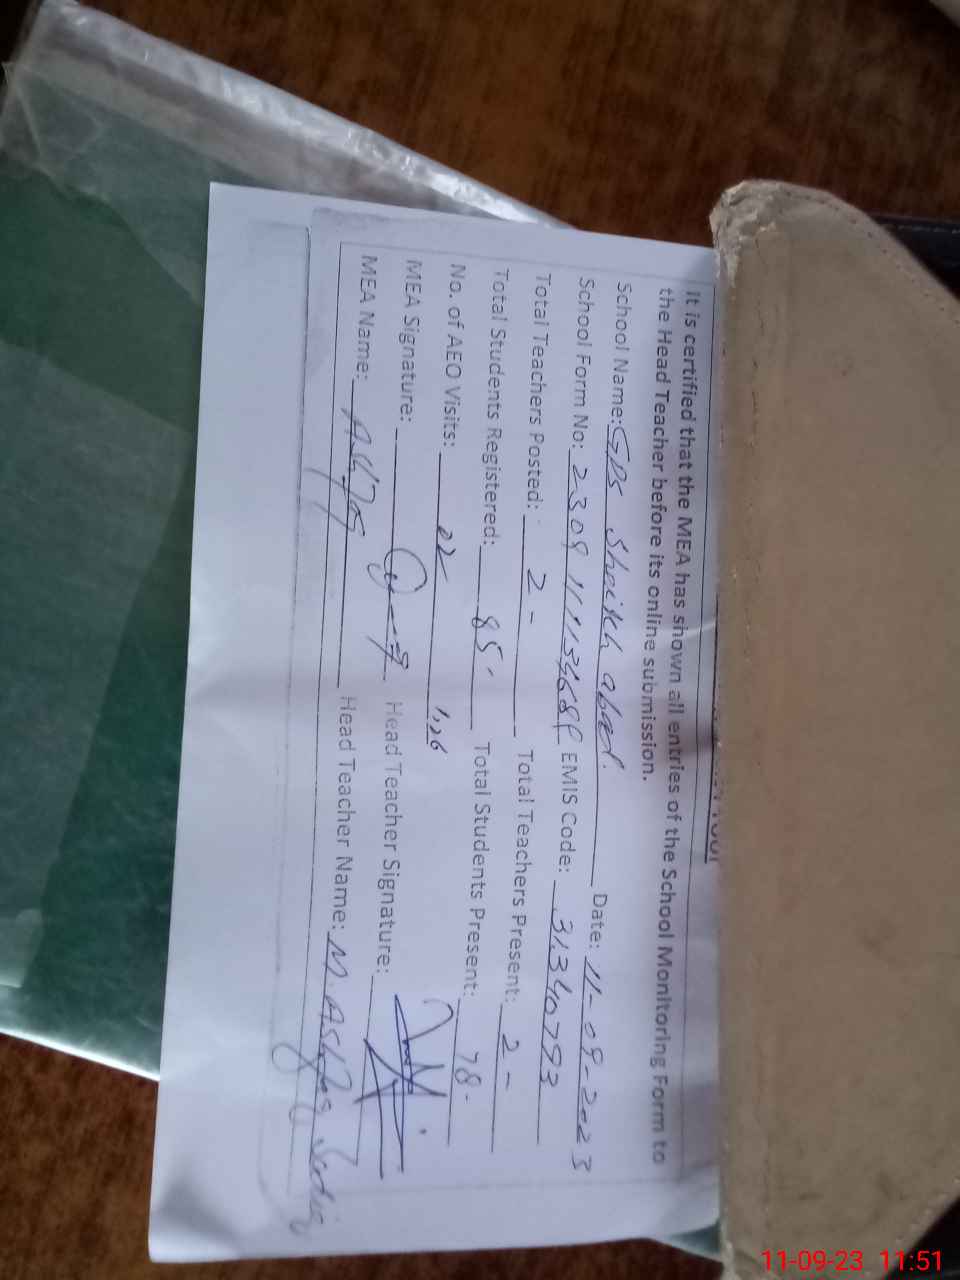 It is certified that the MEA has shown all entries of the School Monitoring Form to
the Head Teacher before its online submission.
School Name: GPS Sheikh abad. Date: 11-09-2023
School Form No: 2309 EMIS Code: 31340793
Total Teachers Posted: 2 - Total Teachers Present: 2 -
Total Students Registered: 85 Total Students Present: 78 -
No. of AEO Visits: 02
MEA Signature: Head Teacher Signature:
MEA Name: Ashfaq Head Teacher Name: M. Ashfaq
11-09-23 11:51